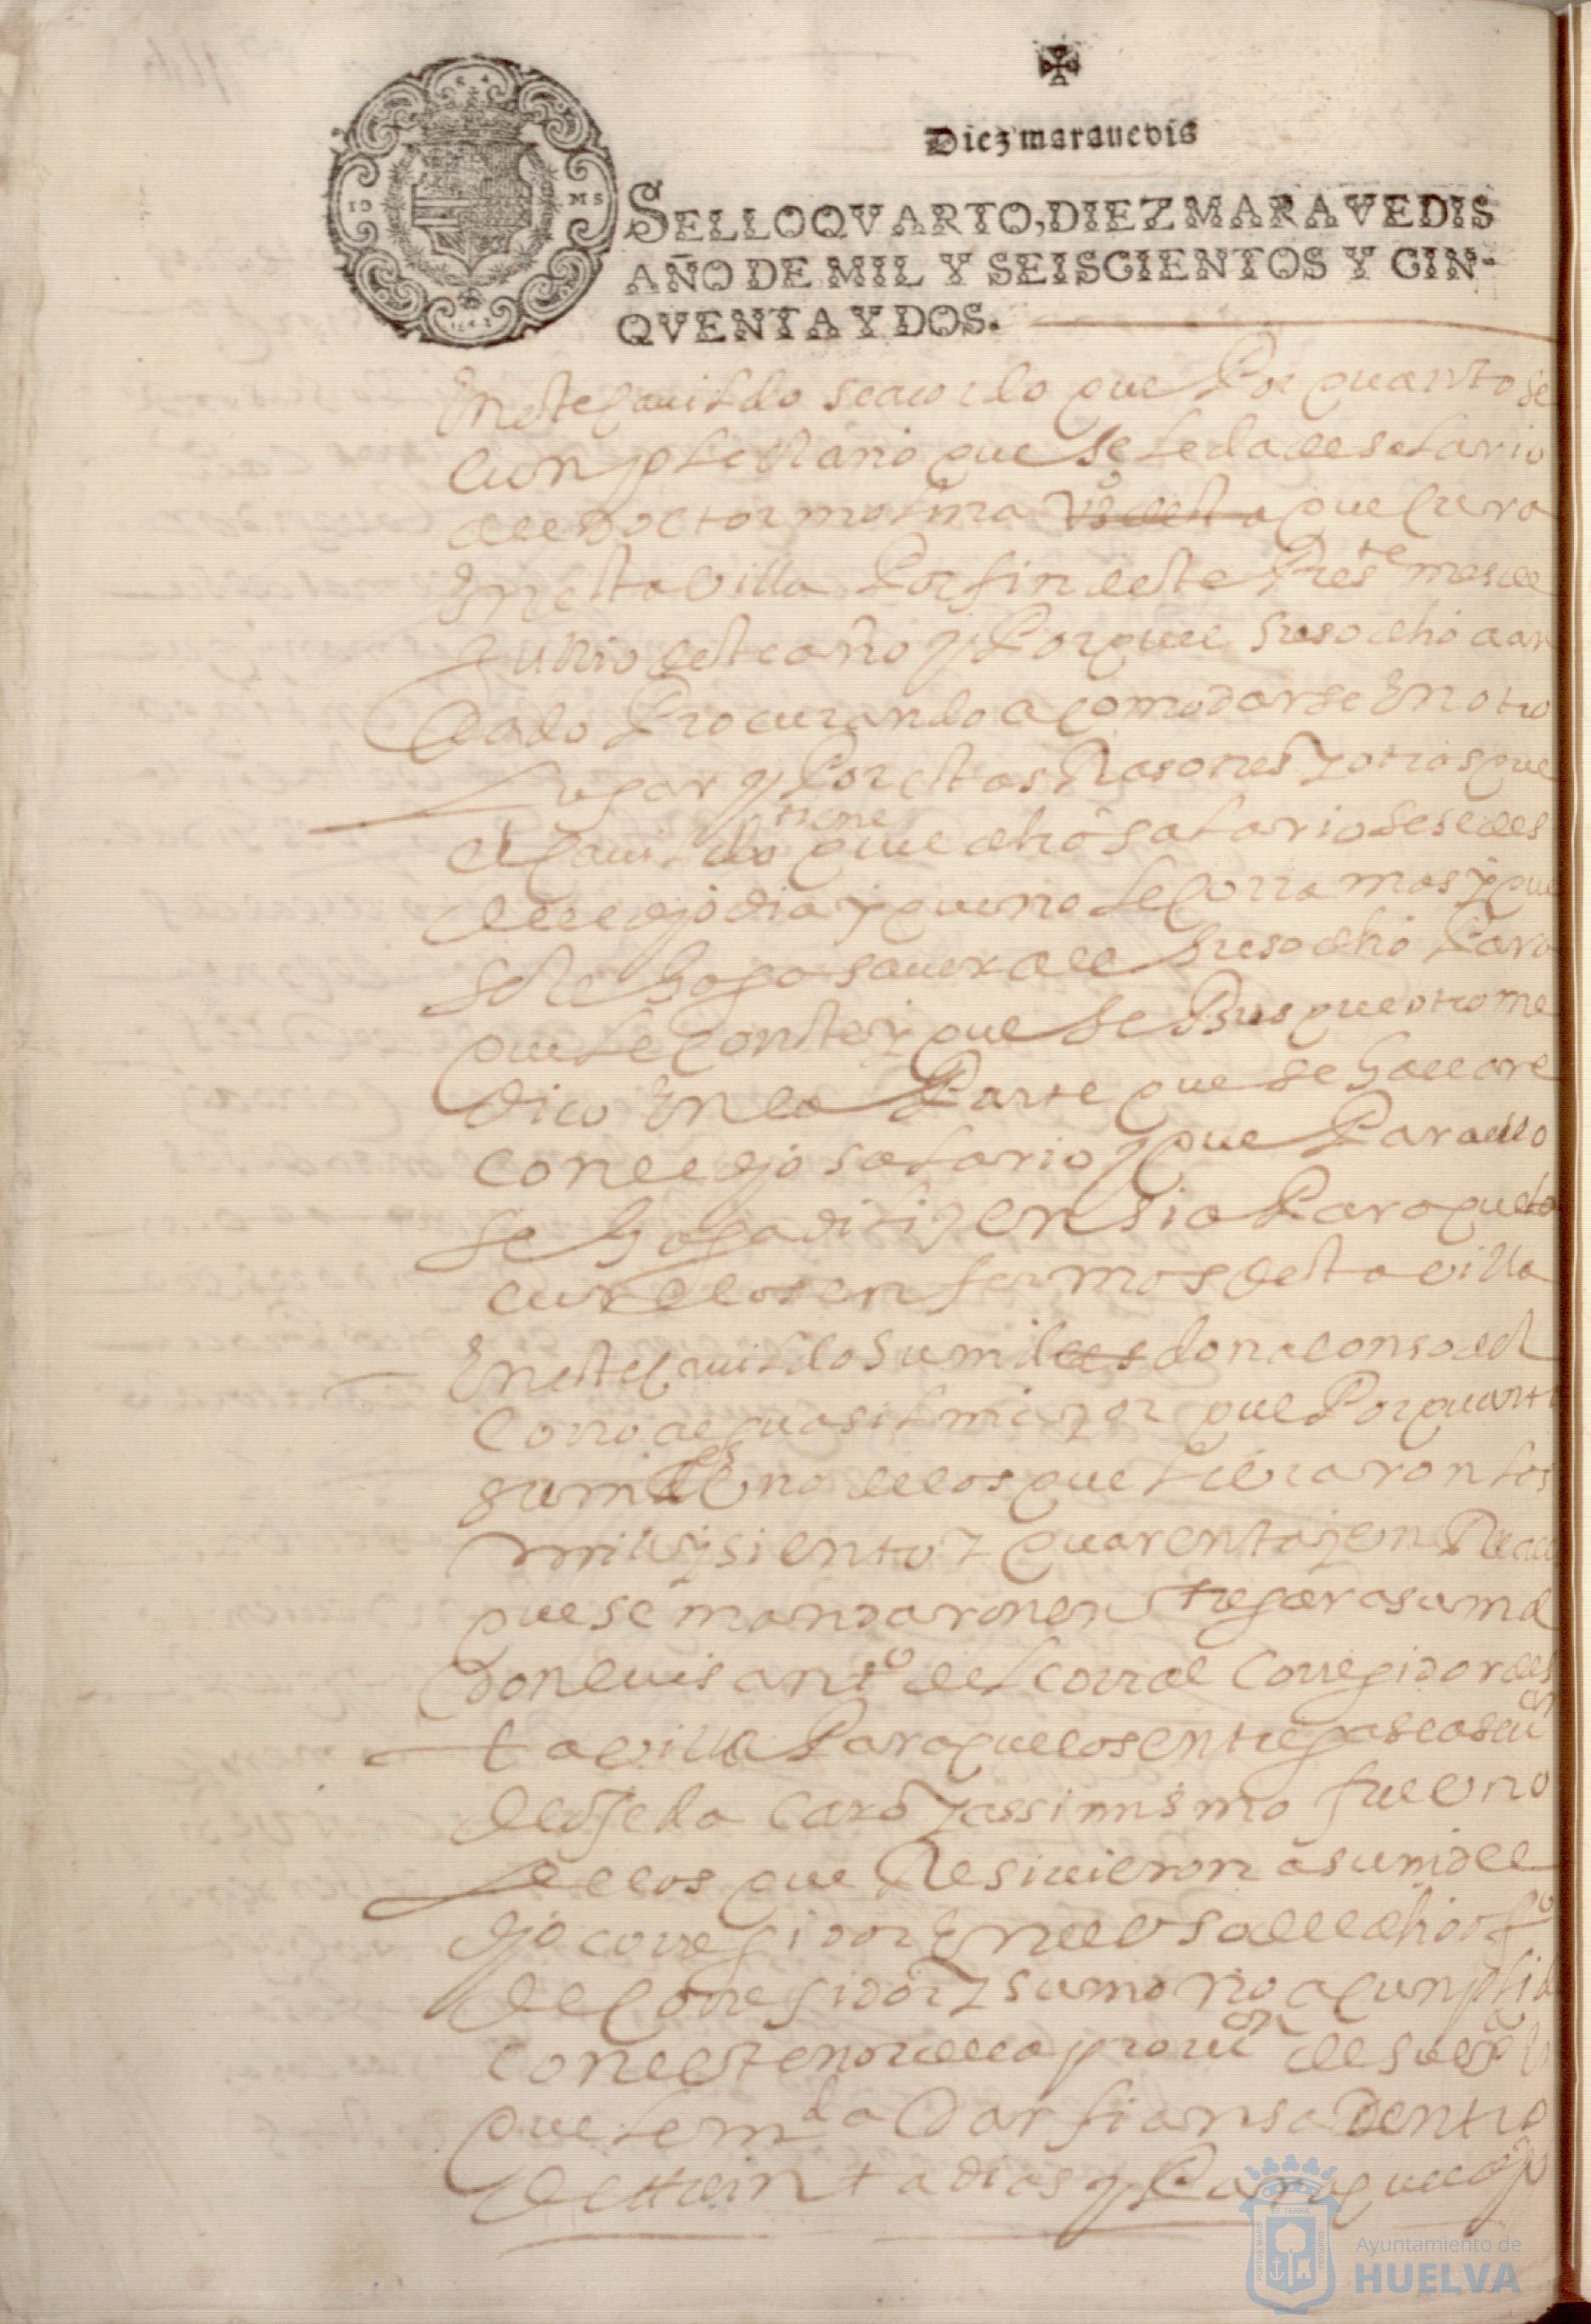 Diez marauedis
SELLO QVARTO, DIEZ MARAVEDIS
AÑO DE MIL Y SEISCIENTOS Y CIN-
QVENTA Y DOS.
En este cauildo se acordo que Por quanto se
cunple el año que se le da de salario
al doctor molina vº desta que cura
En esta villa Por fin deste Preste mes de
Junio deste año y Porque el suso dho a an
dado Procurando acomodarse En otro
Lugar y Por estas Rasones y otras que
el cauildo tiene que dho salario sese des
de el dho dia y que no le corra mas y que
se le haga sauer al suso dho Para
que le conste y que se Busque otro me
dico En la Parte que se hallare
con el dho salario y que Para ello
se haga dilijensia Para que la
cure los enfermos desta villa
En este cauildo su md don alonso del
corro de que Por quanto
su md es Vno de los que libraron los
mil y siento y quarenta y en Reales
que se mandaron entregar a su md
Don luis antº del corral corregidor des
ta villa Para que los entregase a seu
de ojeda caro y assimismo fue vno
de los que Resiuieron a su md el
dho corregidor En el vso del dho ofº
de corregidor y su md no a cunplid
con el tenor de la prouon de su exª
que le mda Dar fiansa Dentro
de treinta dias y Para que el dho
PORTUS MARIS ET TERRAE CUSTODIA
Ayuntamiento de
HUELVA